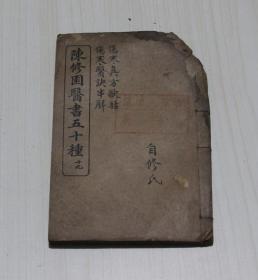 自修氏
傷寒真方歌括
傷寒醫訣串解
陳修園醫書五十種